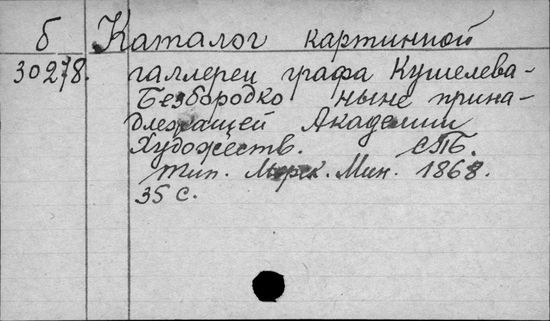 б Каталог картинной
30278. галлереи графа Кушелева-
Безбородко ныне прина-
длежащей Академии
Художеств. СПБ.
Тип. Морск. Мин. 1868.
35 с.